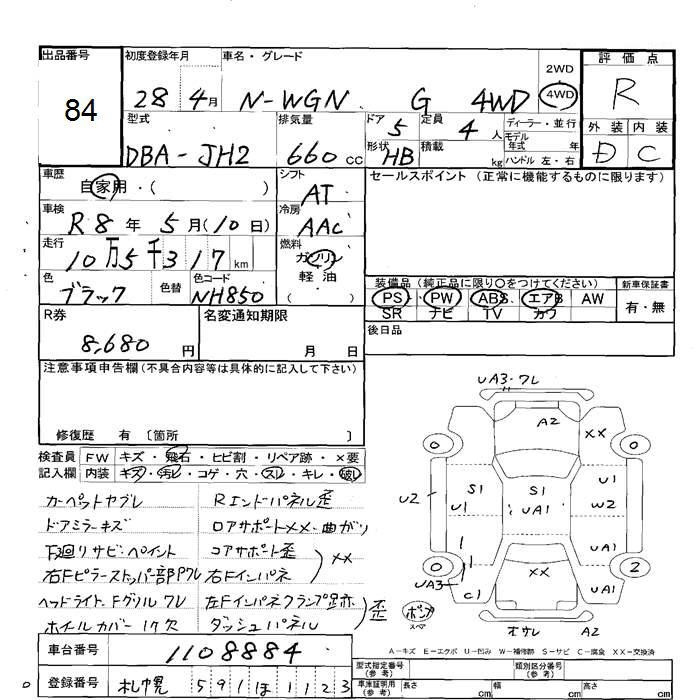 出品番号 84
初度登録年月 28年4月
車名・グレード N-WGN G 4WD
2WD
4WD
評価点 R
型式 DBA-JH2
排気量 660cc
ドア 5
形状 HB
定員 4人
積載 kg
ディーラー・並行
モデル年式 年
ハンドル 左・右
外装 内装
D C
車歴 自家用・( )
シフト AT
セールスポイント (正常に機能するものに限ります)
車検 R8年5月(10日)
冷房 AAC
走行 10万5千317km
燃料 ガソリン
軽油
( )
色 ブラック 色替
色コード NH850
装備品 (純正品に限り○をつけてください)
新車保証書
PS PW ABS エアB AW
SR ナビ TV カワ
有・無
R券 8,680円
名変通知期限 月 日
後日品
注意事項申告欄 (不具合内容等は具体的に記入して下さい)
修復歴 有 〔箇所 〕
検査員 FW キズ・飛石・ヒビ割・リペア跡・×要
記入欄 内装 キズ・汚レ・コゲ・穴・スレ・キレ・破レ
カーペットヤブレ Rエンドパネル歪
ドアミラーキズ ロアサポートXX・曲がり
下廻りサビ・ペイント コアサポート歪
XX
右Fピラーストッパー部Pワレ 右Fインパネ
ヘッドライト、Fグリルワレ 左Fインパネクランプ跡
歪
ホイルカバー1ケ欠 ダッシュパネル
UA3・ワレ
A2
XX
0 0
U2 U1 S1 S1 UA1 U1 W2
UA1
0 2
UA3 C1 XX UA1
ボップ
スペア
オサレ A2
A-キズ E-エクボ U-凹み W-補修跡 S-サビ C-腐食 XX-交換済
車台番号 1108884
登録番号 札幌 591 ほ 1123
型式指定番号 (参考)
類別区分番号 (参考)
車庫証明用 (参考) 長さ cm 幅 cm 高さ cm